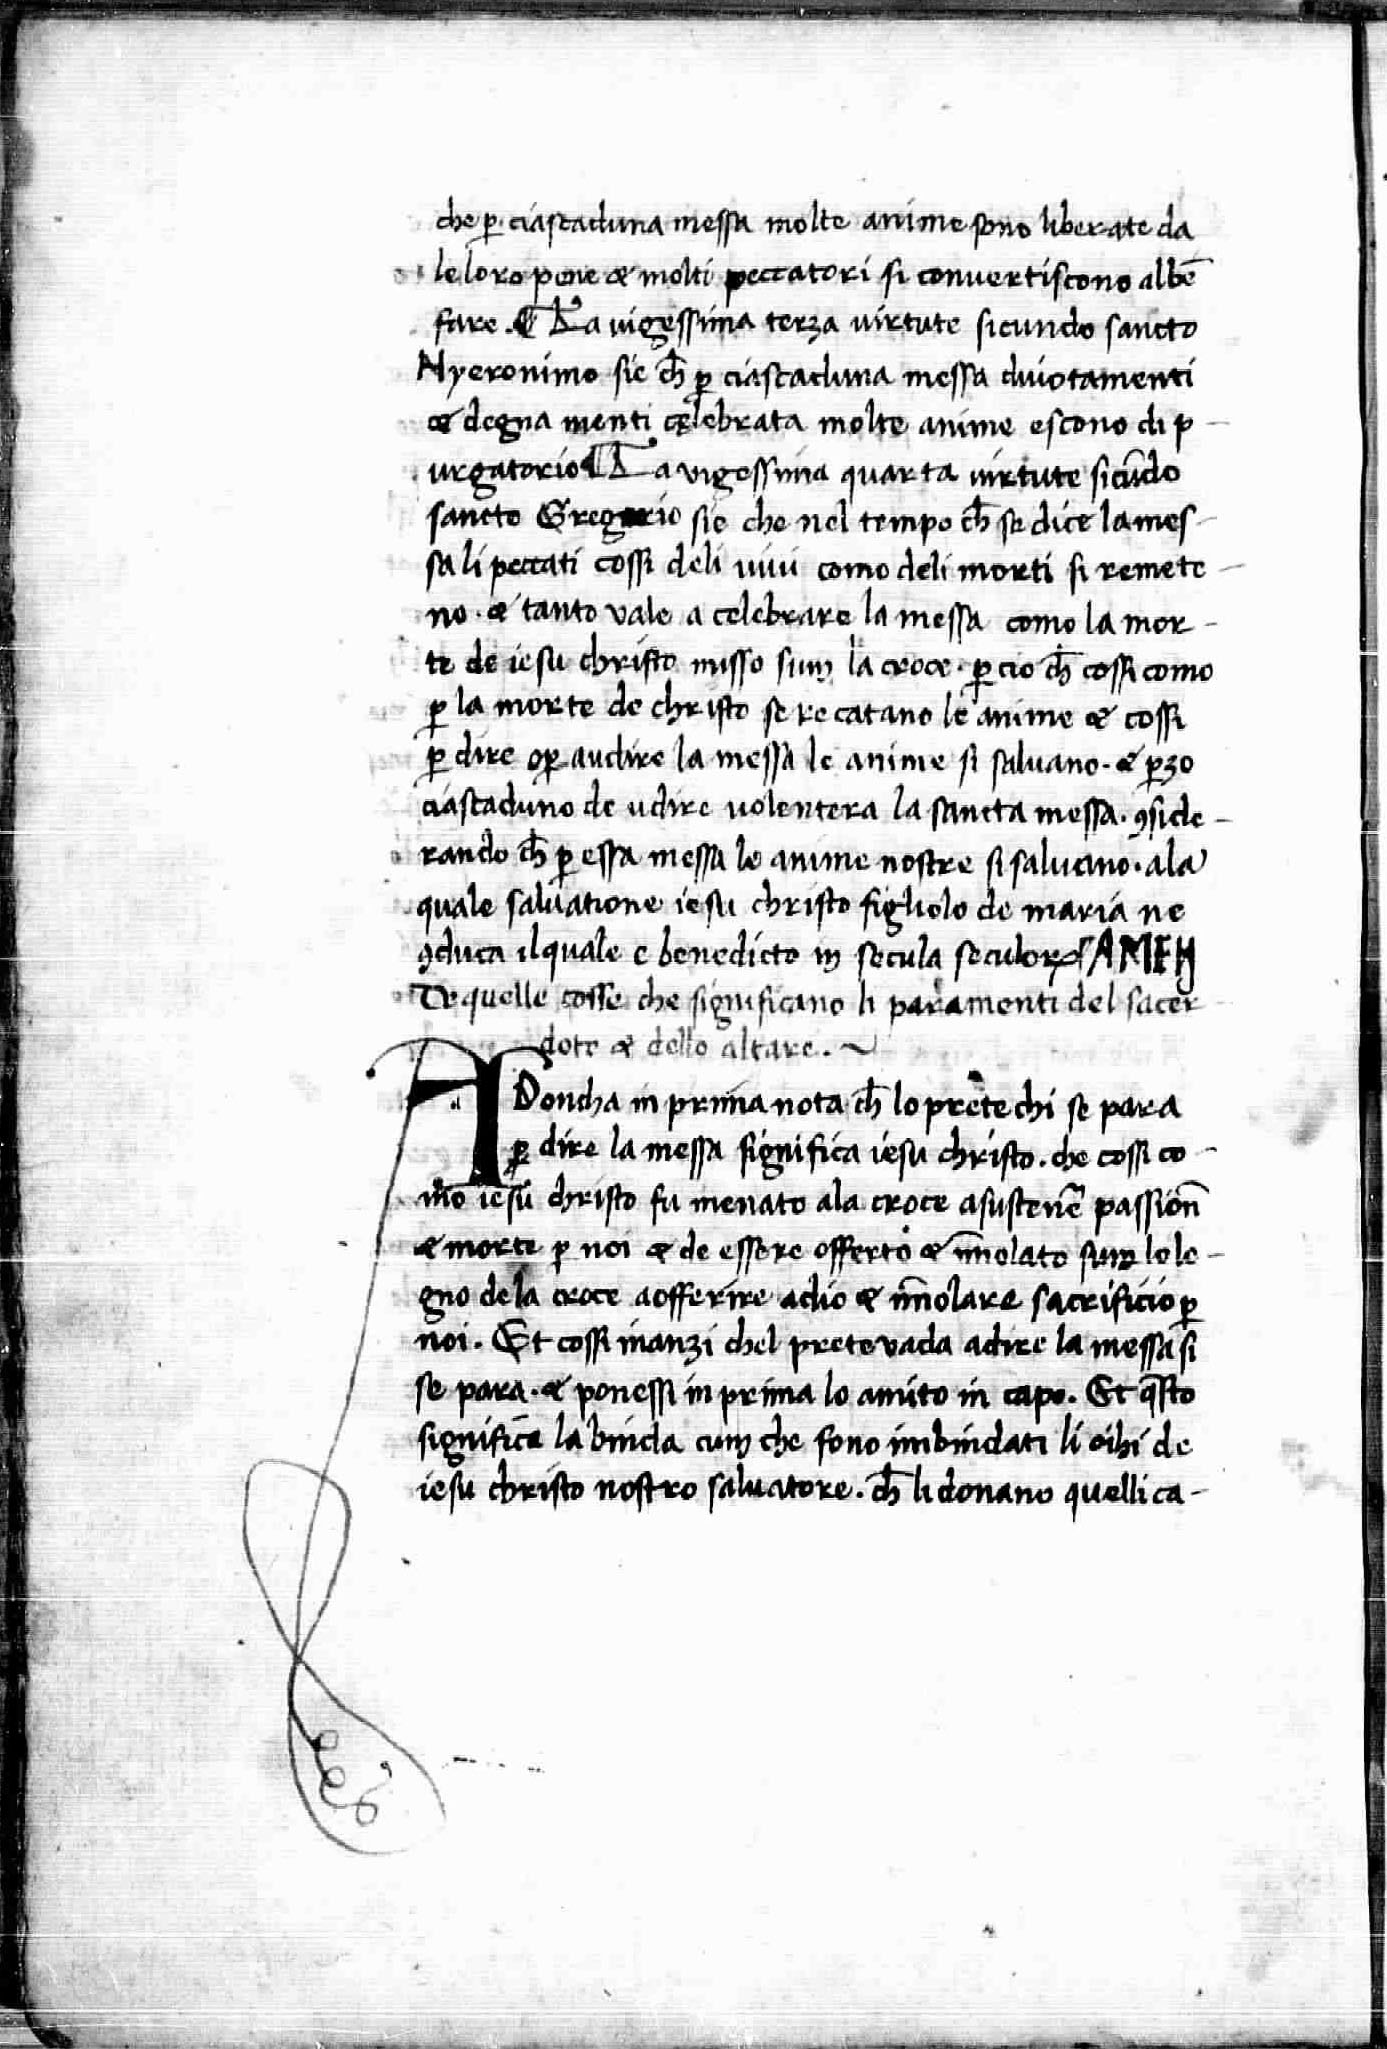 che ꝑ ciascaduna messa molte anime sono liberate da
le loro pene & molti peccatori si convertiscono al bē
fare. ¶ La uigessima terza uirtute sicundo sancto
Hyeronimo sie ch̄ ꝑ ciascaduna messa diuotamenti
& degna menti celebrata molte anime escono di p-
urgatorio ¶ La vigessima quarta uirtute sicūdo
sancto Gregorio sie che nel tempo ch̄ se dice la mes-
sa li peccati cossi deli uiui como deli morti si remete-
no. & tanto vale a celebrare la messa como la mor-
te de iesu christo misso sum la croce. ꝑ cio ch̄ cossi como
ꝑ la morte de christo se recatano le anime & cossi
ꝑ dire o ꝑ audire la messa le anime si saluano. & ꝑzo
ciascaduno de udire uolentera la sancta messa. ꝯside-
rando ch̄ ꝑ essa messa le anime nostre si saluano. ala
quale saluatione iesu christo figliolo de maria ne
ꝯduca il quale e benedicto in secula seculoꝝ AMEN
De quelle cosse che significano li paramenti del sacer-
dote & dello altare.
ADoncha in prima nota ch̄ lo prete chi se para
ꝑ dire la messa significa iesu christo. che cossi co-
mo iesu christo fu menato ala croce a sustenē passion̄
& morte ꝑ noi & de essere offerto & īmolato sum lo le-
gno de la croce a offerire a dio & īmolare sacrificio ꝑ
noi. Et cossi inanzi chel prete vada a dire la messa si
se para. & ponessi in prima lo amito in capo. Et q̄sto
significa la binda cum che fono imbindati li oihi de
iesu christo nostro saluatore. ch̄ li donano quelli ca-